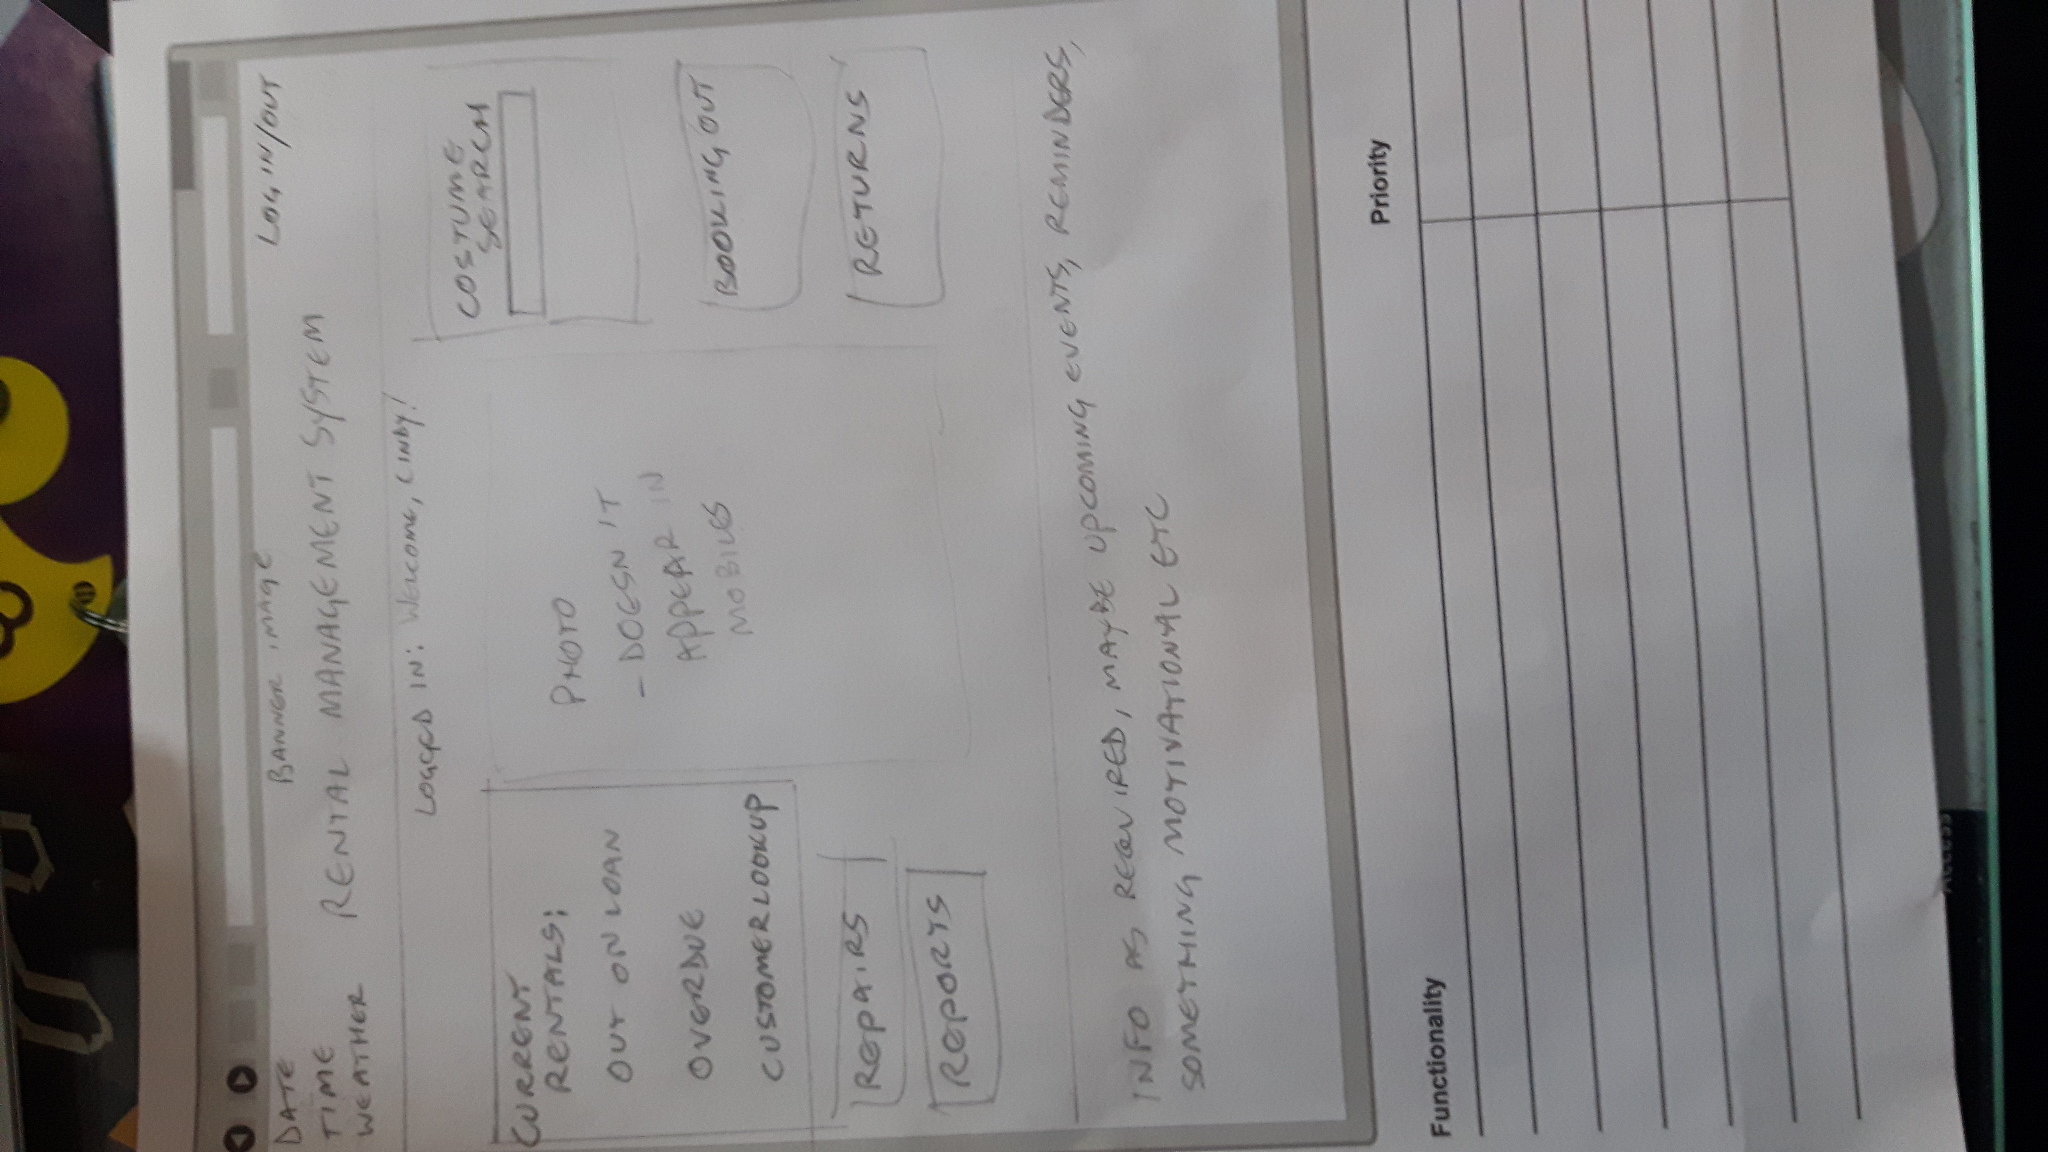 DATE
TIME
WEATHER
BANNER IMAGE
RENTAL MANAGEMENT SYSTEM
LOG IN/OUT
LOGGED IN: WELCOME, CINDY!
CURRENT
RENTALS:
OUT ON LOAN
OVERDUE
CUSTOMER LOOKUP
REPAIRS
REPORTS
PHOTO
- DOESN'T
APPEAR IN
MOBILES
COSTUME
SEARCH
BOOKING OUT
RETURNS
INFO AS REQUIRED, MAYBE UPCOMING EVENTS, REMINDERS,
SOMETHING MOTIVATIONAL ETC
Functionality
Priority
Access